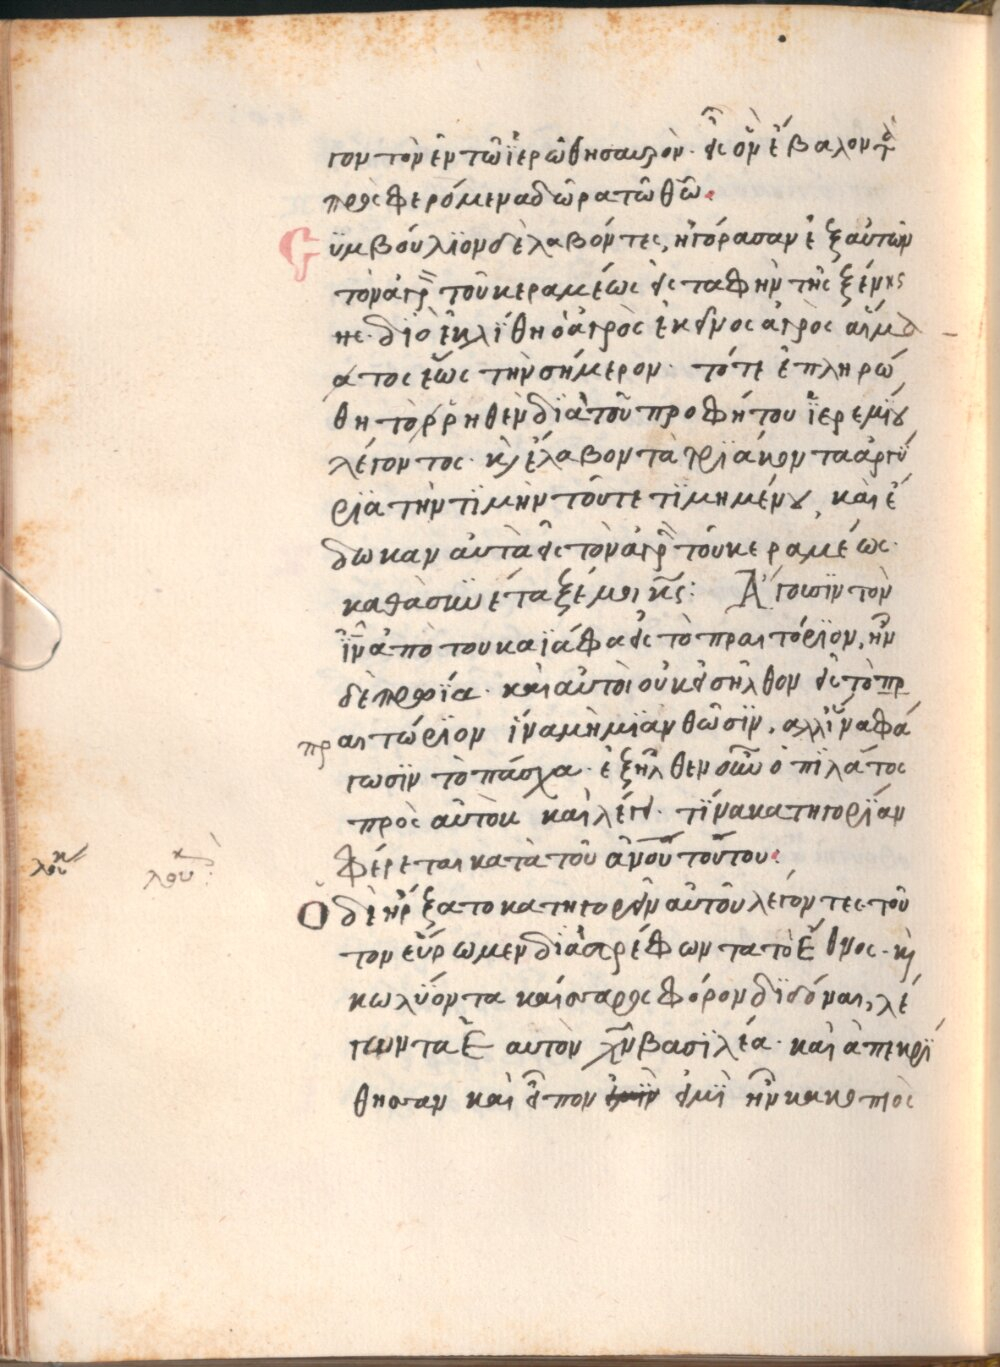 γον τὸν ἐν τῶ ἱερῶ θησαυρὸν· εἰς ὃν ἔβαλον τὰ
προσφερόμενα δῶρα τῶ θῶ.
Συμβούλϊον δὲ λαβόντες, ἠγόρασαν ἐξ αὐτῶν
τὸν ἀγρ τοῦ κεραμέως εἰς ταφὴν τῆς ξένης
ης· διὸ ἐκλίθη ὁ ἀγρὸς ἐκεῖνος ἀγρὸς αἵμα
ατος ἕως τὴν σήμερον· τότε ἐπληρώ
θη τὸ ῥρηθὲν διὰ τοῦ προφήτου ἱερεμίου
λέγοντος· καὶ ἔλαβον τὰ τριάκοντα ἀργύ
ρϊα τὴν τϊμὴν τοῦ τετϊμημένου, καὶ ἔ
δωκαν αὐτὰ εἰς τὸν ἀγρ τοῦ κεραμέως·
καθὰ συνέταξέ μοι κς: Ἄγουσϊν τὸν
ιν ἀπὸ του καϊάφα εἰς τὸ πραιτόρϊον, ἦν
δὲ πρωΐα· καὶ αὐτοὶ οὐκ εἰσῆλθον εἰς τὸ πρ
πραιτώρϊον ἵνα μὴ μϊανθῶσϊν, αλλ ἵνα φά
γωσϊν τὸ πάσχα· ἐξῆλθεν οὖν ὁ πϊλάτος
πρὸς αὐτοὺς καὶ λέγει· τίνα κατηγορϊαν
φέρεται κατὰ τοῦ ἀνου τούτου:
λουκ λουκ:
Ο δὲ ἤρξατο κατηγορεῖν αὐτοῦ λέγοντες· τοῦ
τον εὕρωμεν διαστρέφωντα τὸ Ἔθνος· καὶ
κωλύοντα καίσαρος φόρον δϊδόναι, λέ
γωντα Ἑαυτὸν χν βασϊλέα· καὶ ἀπεκρί
θησαν καὶ εἶπον εἰμὶ ἦν κακοποιὸς